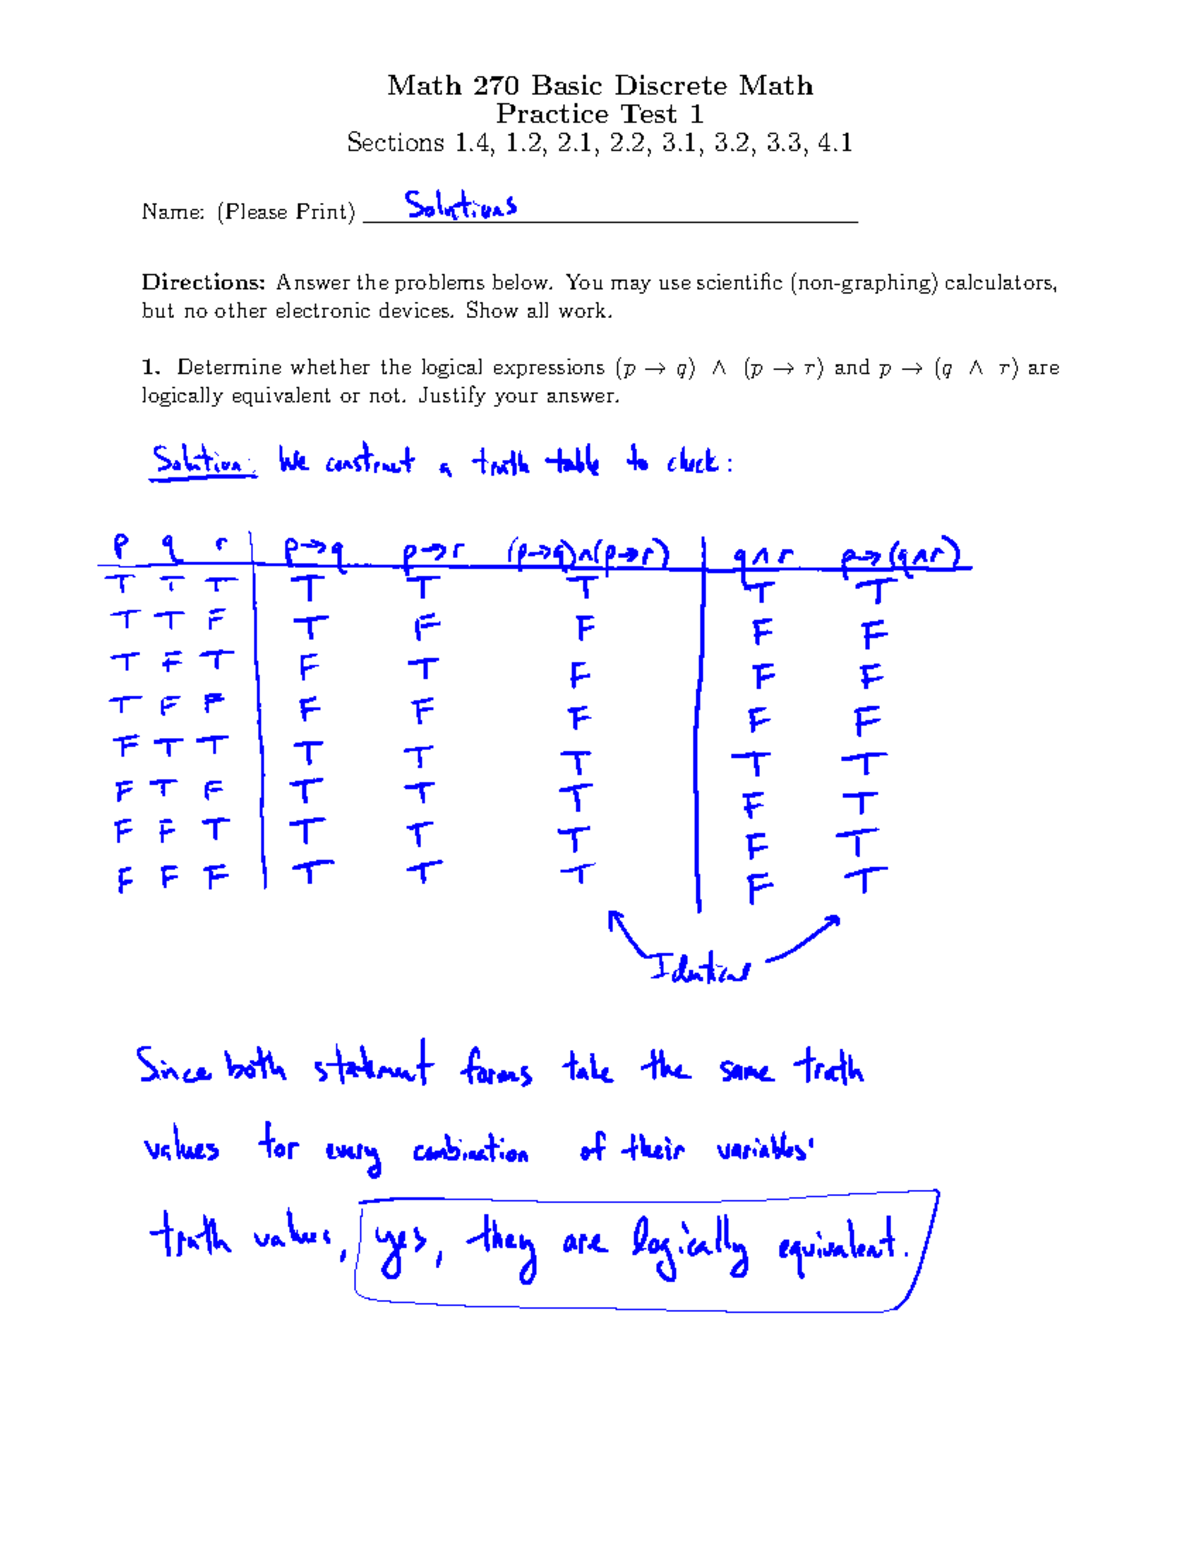 Math 270 Basic Discrete Math
Practice Test 1
Sections 1.4, 1.2, 2.1, 2.2, 3.1, 3.2, 3.3, 4.1
Name: (Please Print) Solutions
Directions: Answer the problems below. You may use scientific (non-graphing) calculators,
but no other electronic devices. Show all work.
1. Determine whether the logical expressions (p → q) ∧ (p → r) and p → (q ∧ r) are
logically equivalent or not. Justify your answer.
Solution: We construct a truth table to check:
p q r p→q p→r (p→q)∧(p→r) q∧r p→(q∧r)
T T T T T T T T
T T F T F F F F
T F T F T F F F
T F F F F F F F
F T T T T T T T
F T F T T T F T
F F T T T T F T
F F F T T T F T
Identical
Since both statement forms take the same truth
values for every combination of their variables'
truth values, yes, they are logically equivalent.